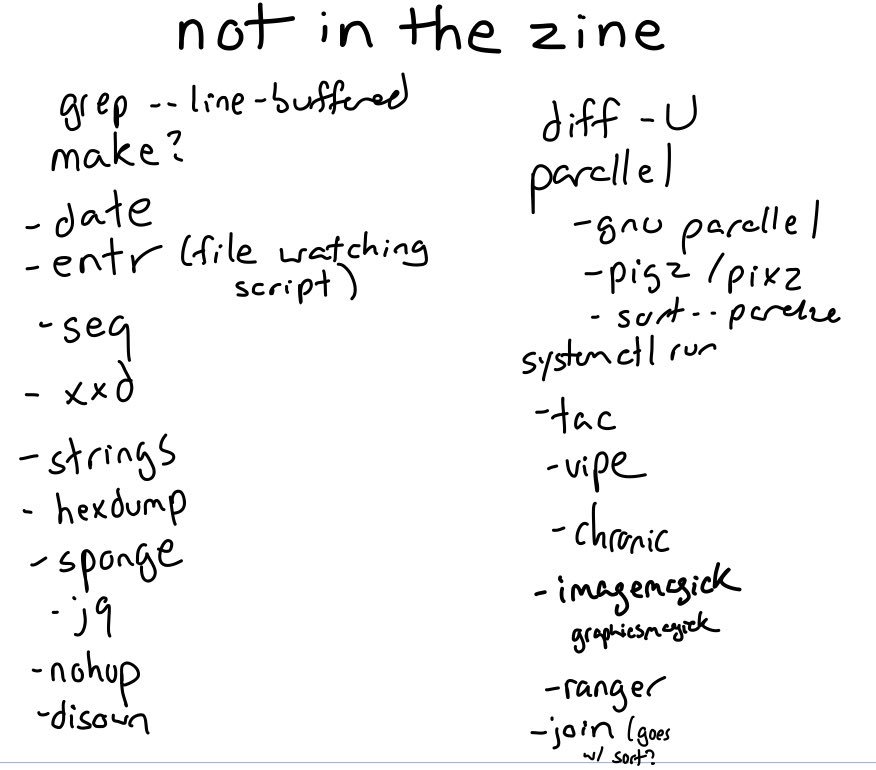 not in the zine
grep -- line-buffered
make?
- date
- entr (file watching
script)
- seq
- xxd
- strings
- hexdump
- sponge
- jq
- nohup
- disown
diff -U
parallel
- gnu parallel
- pigz / pixz
- sort --
systemctl run
- tac
- vipe
- chronic
- imagemagick
graphicsmagick
- ranger
- join (goes
w/ sort?